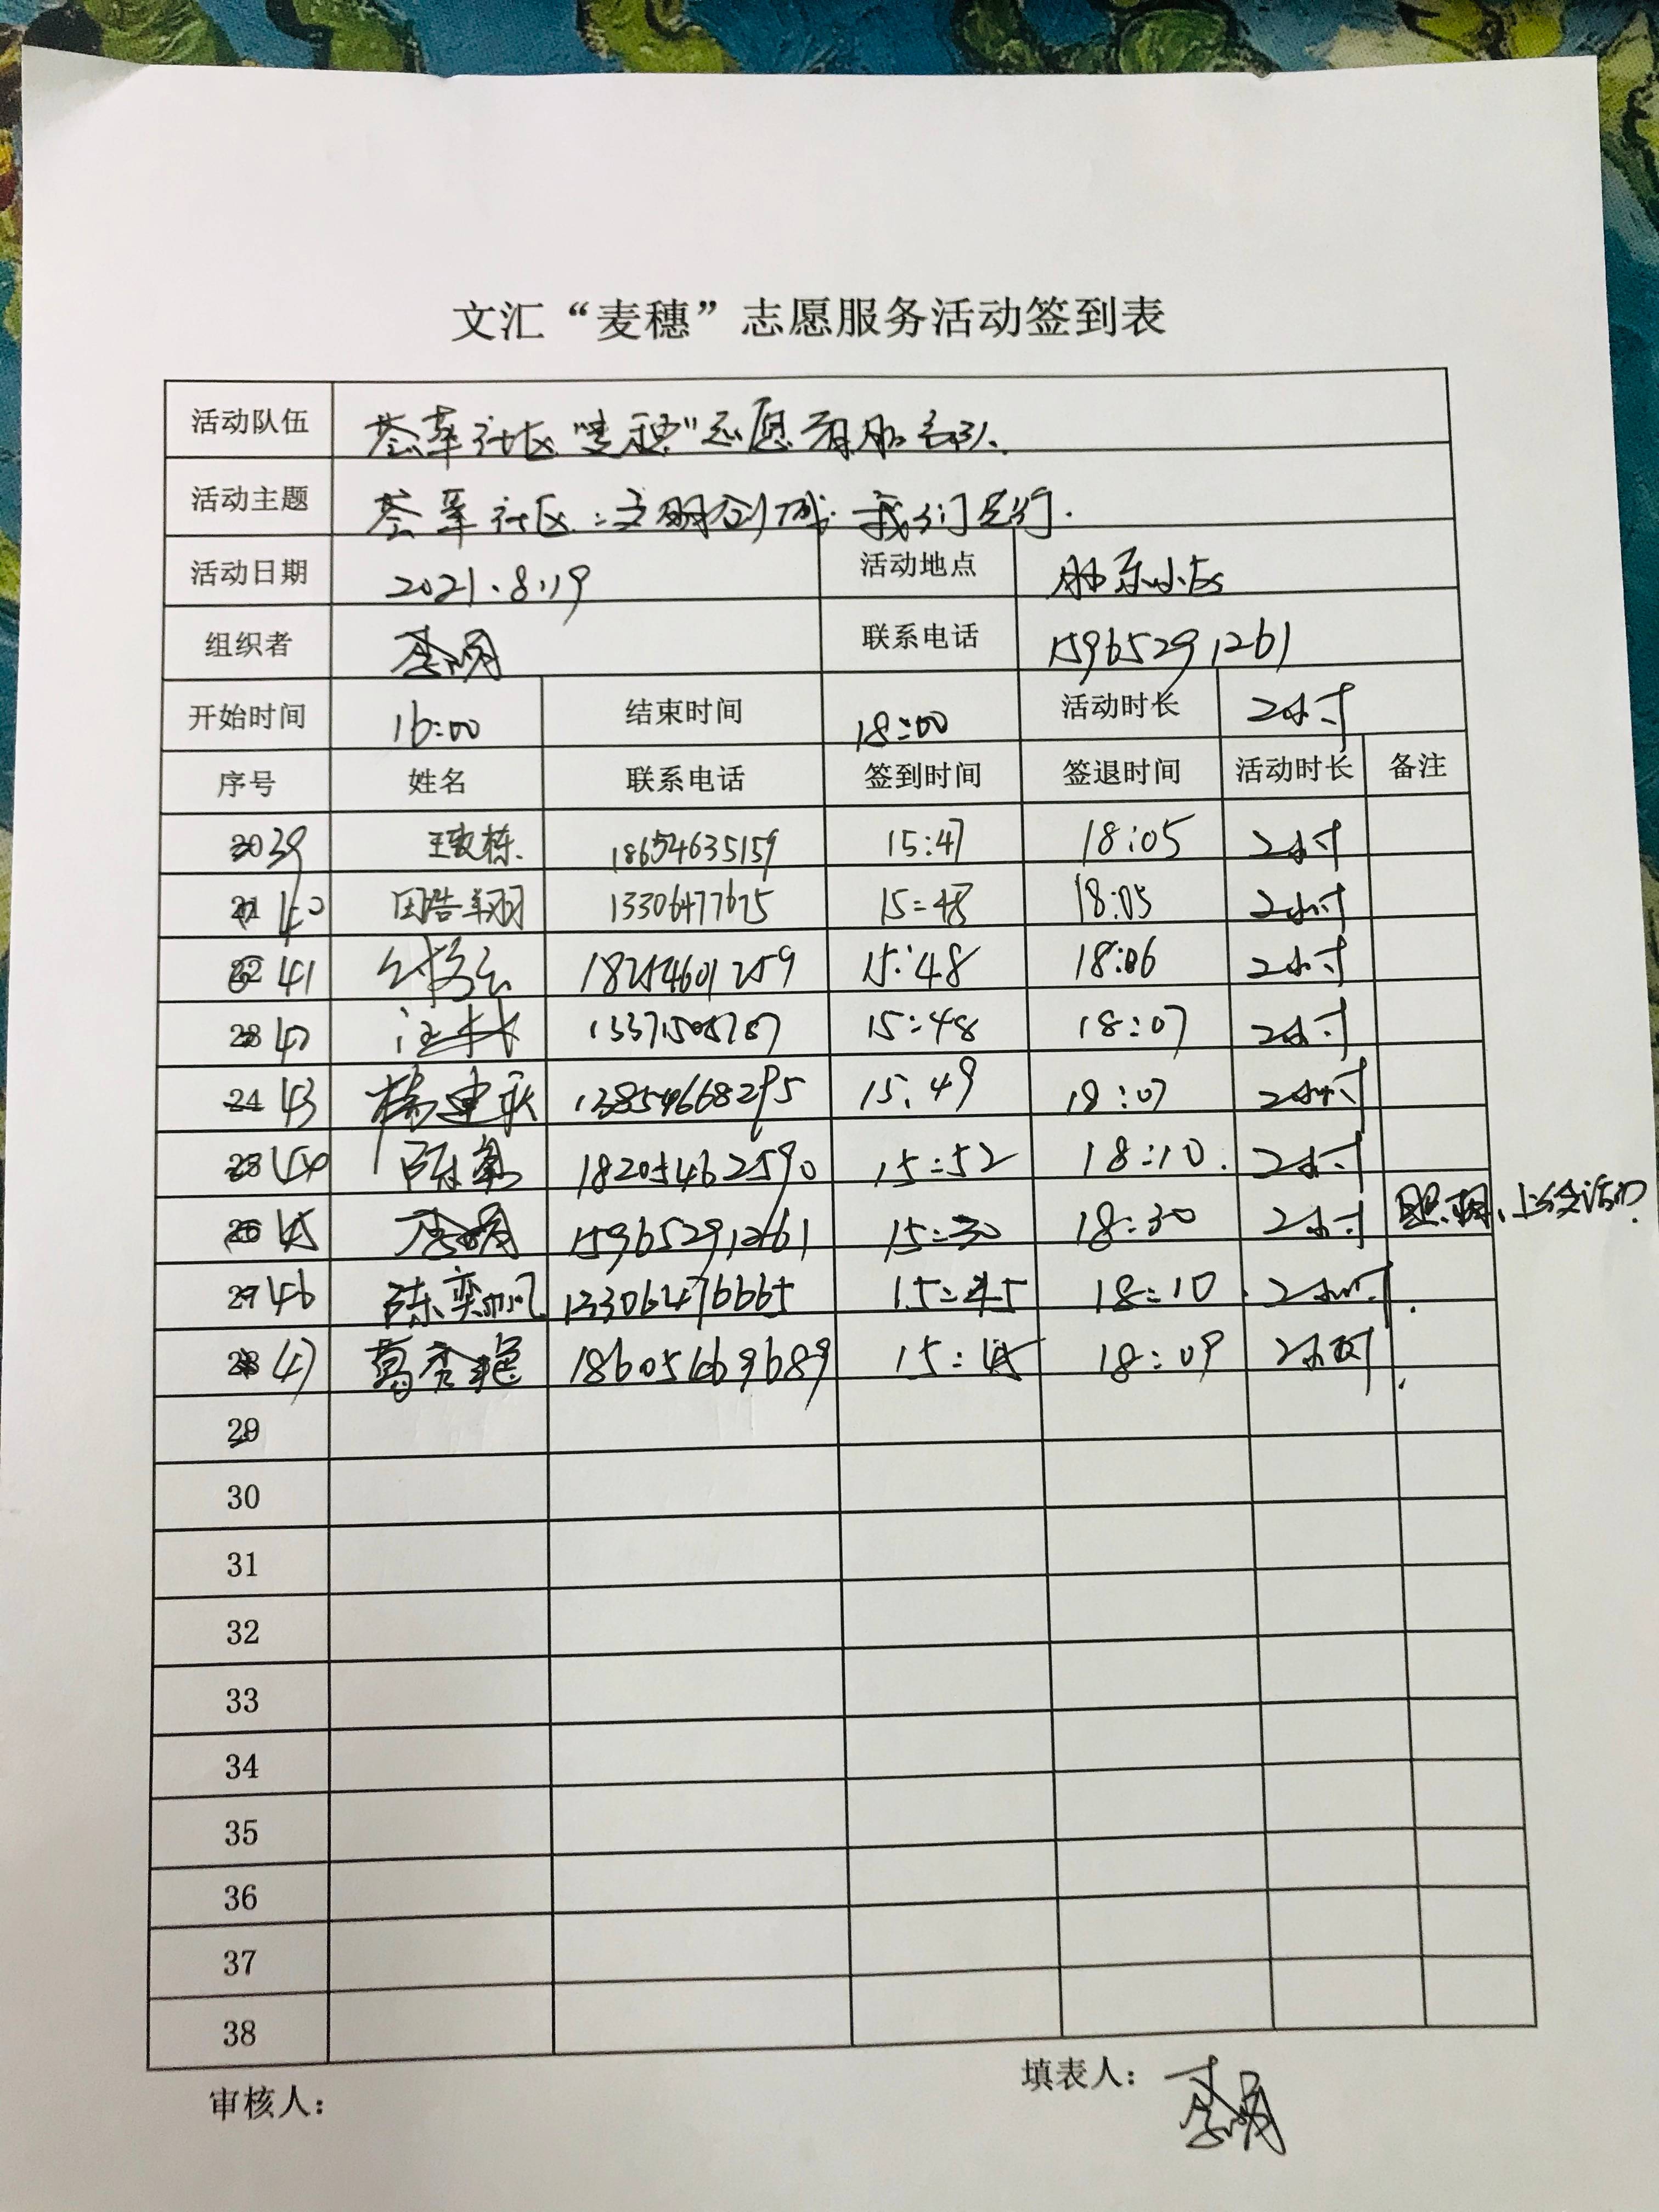 文汇“麦穗”志愿服务活动签到表
活动队伍 荟萃社区“麦穗”志愿服务队.
活动主题 荟萃社区:文明创城 我们先行.
活动日期 2021.8.19 活动地点 胜东小区
组织者 联系电话 15965291261
开始时间 16:00 结束时间 18:00 活动时长 2小时
序号 姓名 联系电话 签到时间 签退时间 活动时长 备注
39 18654635159 15:47 18:05 2小时
40 田浩翔 13306477675 15:48 18:05 2小时
41 18254601259 15:48 18:06 2小时
42 15:48 18:07 2小时
43 13854668295 15:49 18:07 2小时
44 18205462590 15:52 18:10. 2小时
45 15965291261 15:30 18:30 2小时
46 陈奕帆 13306476665 15:45 18:10 2小时.
47 葛秀艳 18605469689 15:45 18:09 2小时.
29
30
31
32
33
34
35
36
37
38
审核人: 填表人: